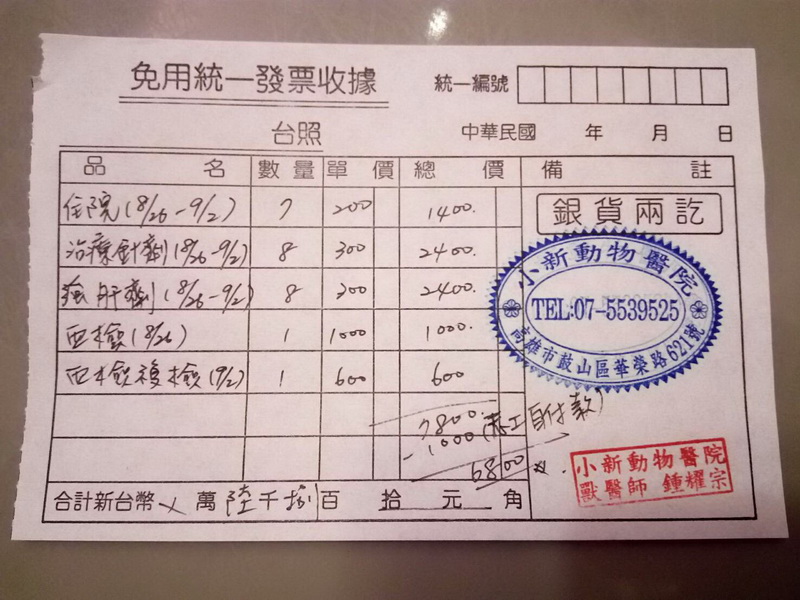 免用統一發票收據
統一編號
台照
中華民國 年 月 日
品名 數量 單價 總價 備註
住院(8/26-9/2) 7 200 1400.
治療針劑(8/26-9/2) 8 300 2400.
強肝劑(8/26-9/2) 8 300 2400.
血檢(8/26) 1 1000 1000.
血檢複檢(9/2) 1 600 600
7800.
-1000(志工自付款)
6800
合計新台幣 萬 陸千捌百 拾 元 角
銀貨兩訖
小新動物醫院
TEL:07-5539525
高雄市鼓山區華榮路621號
小新動物醫院
獸醫師 鍾耀宗